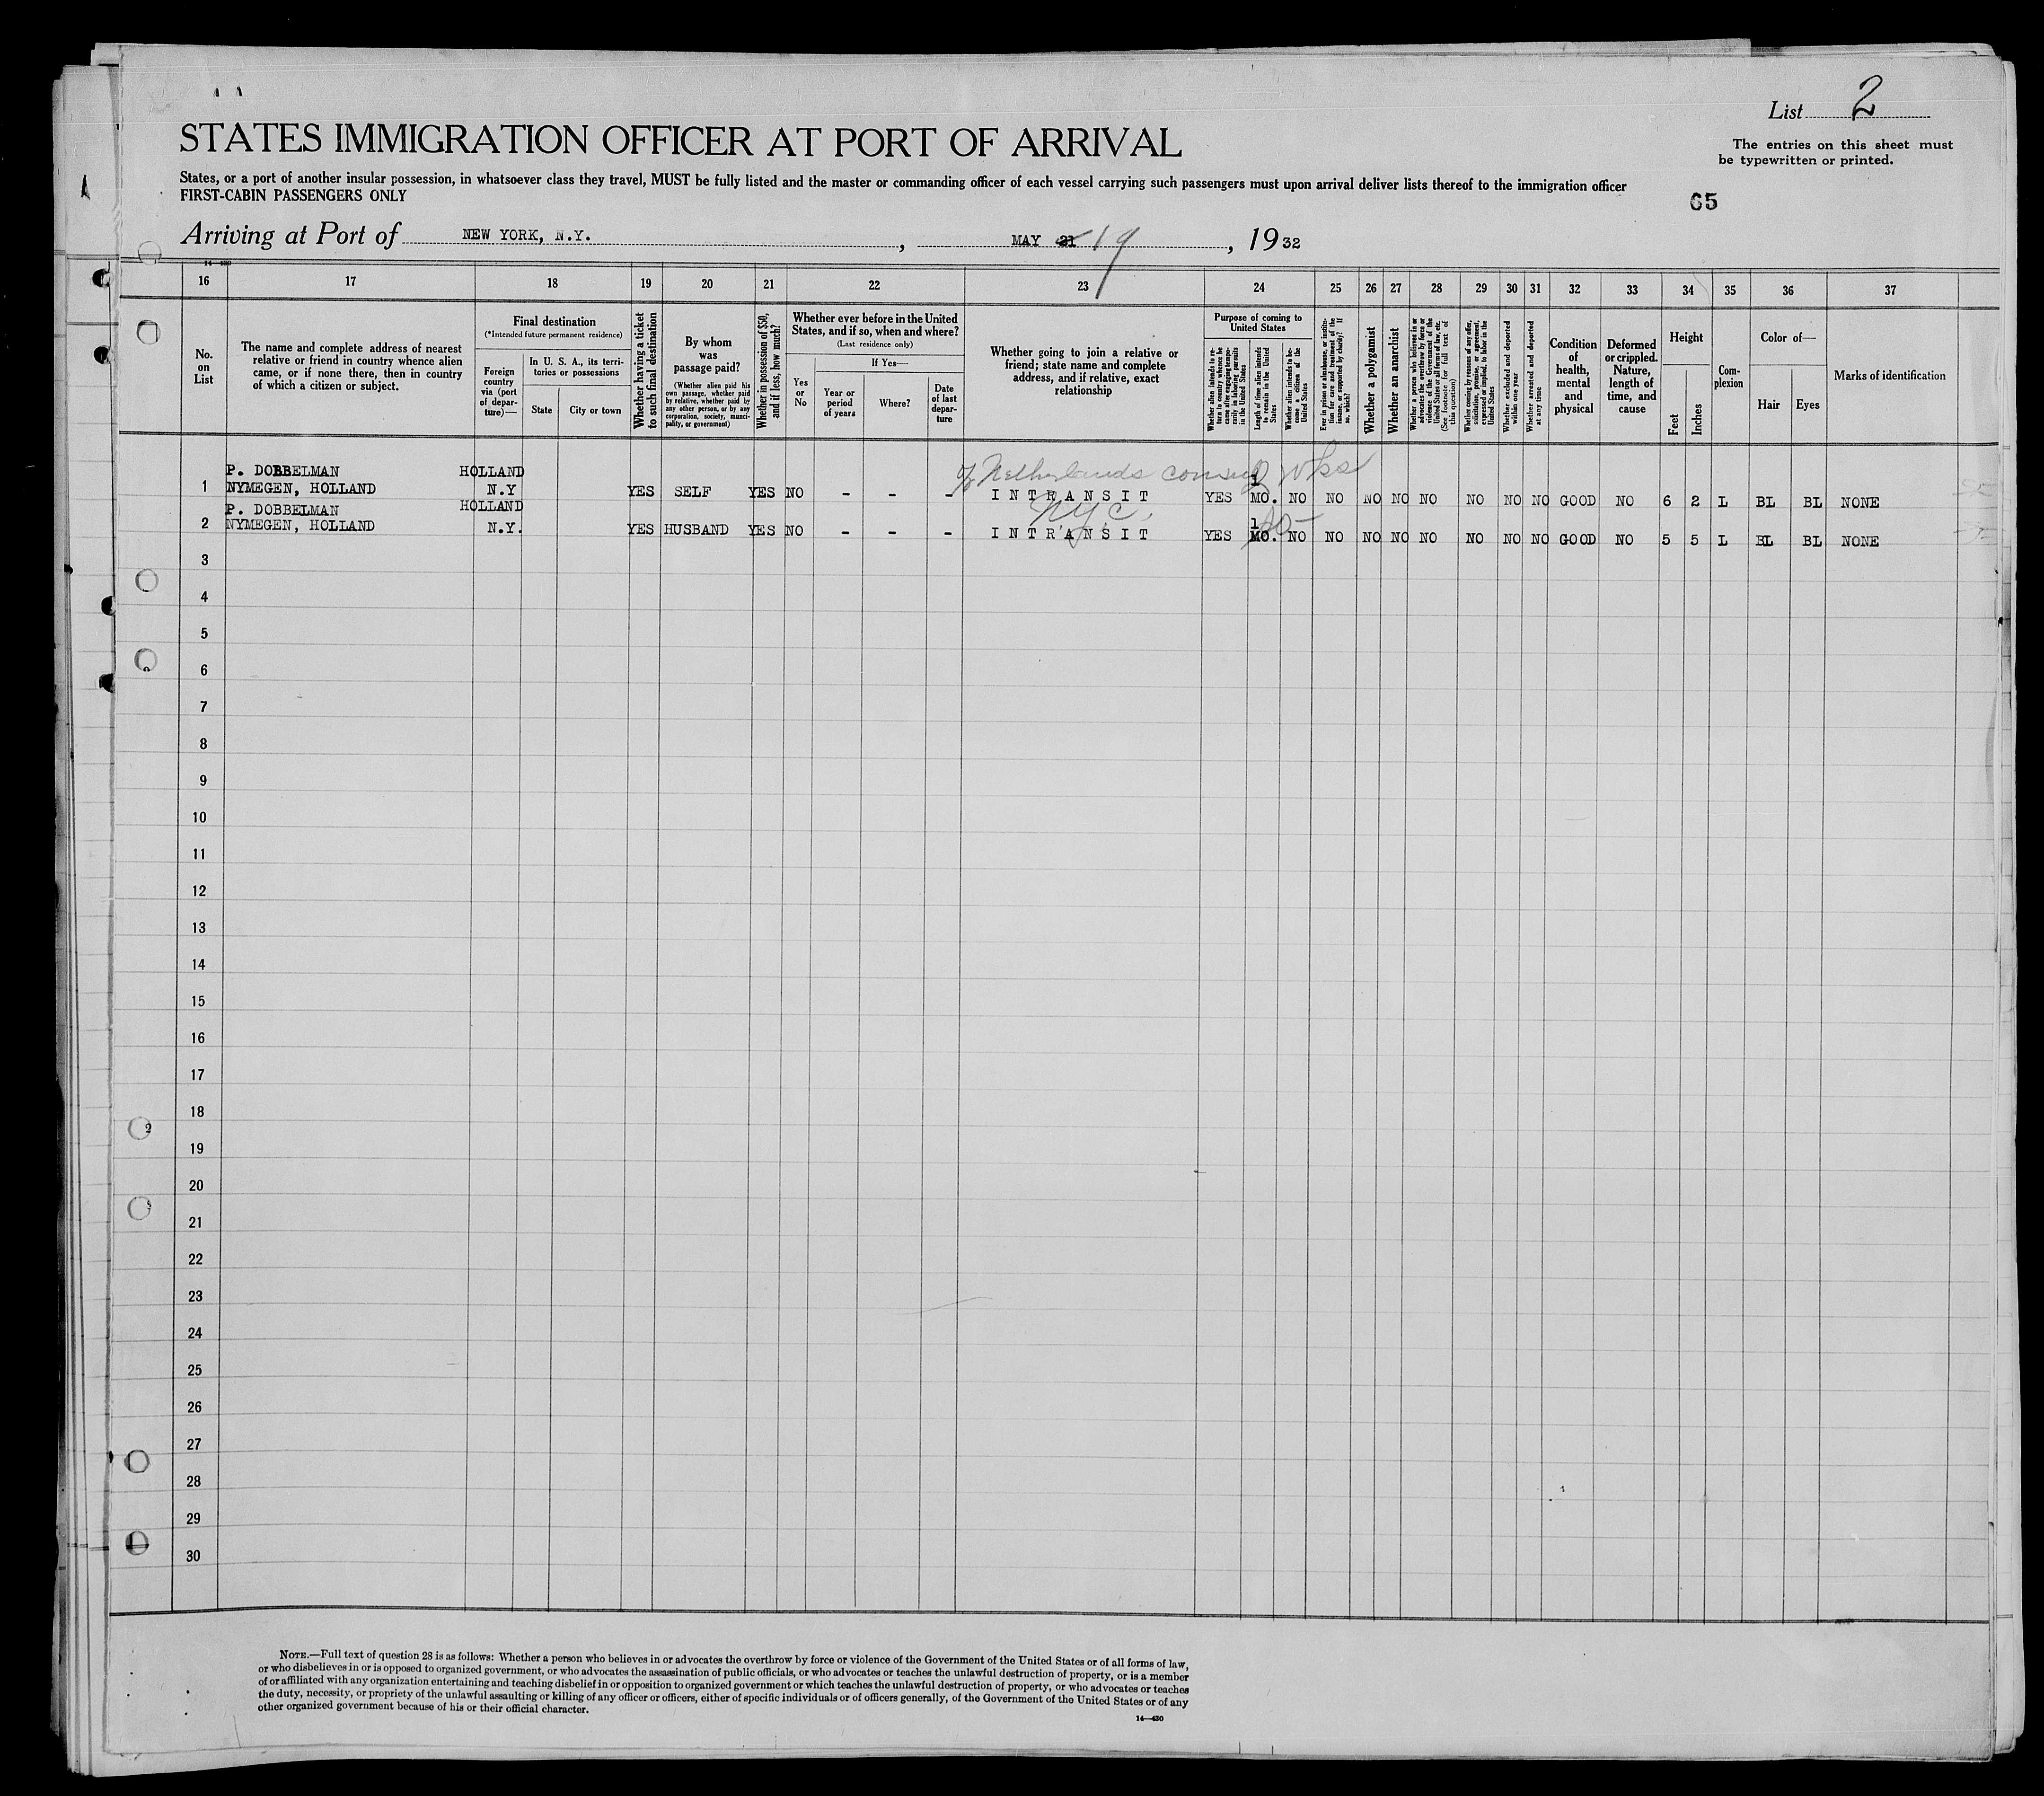 List 2
STATES IMMIGRATION OFFICER AT PORT OF ARRIVAL
The entries on this sheet must
be typewritten or printed.
States, or a port of another insular possession, in whatsoever class they travel, MUST be fully listed and the master or commanding officer of each vessel carrying such passengers must upon arrival deliver lists thereof to the immigration officer
FIRST-CABIN PASSENGERS ONLY
65
Arriving at Port of NEW YORK, N.Y. , MAY 21 19 , 1932
14—430
16 17 18 19 20 21 22 23 24 25 26 27 28 29 30 31 32 33 34 35 36 37
No.
on
List
The name and complete address of nearest
relative or friend in country whence alien
came, or if none there, then in country
of which a citizen or subject.
Final destination
(*Intended future permanent residence)
Foreign
country
via (port
of depar-
ture)—
In U. S. A., its terri-
tories or possessions
State
City or town
Whether having a ticket
to such final destination
By whom
was
passage paid?
(Whether alien paid his
own passage, whether paid
by relative, whether paid by
any other person, or by any
corporation, society, munici-
pality, or government)
Whether in possession of $50,
and if less, how much?
Whether ever before in the United
States, and if so, when and where?
(Last residence only)
Yes
or
No
If Yes—
Year or
period
of years
Where?
Date
of last
depar-
ture
Whether going to join a relative or
friend; state name and complete
address, and if relative, exact
relationship
Purpose of coming to
United States
Whether alien intends to re-
turn to country whence he
came after engaging tempo-
rarily in laboring pursuits
in the United States
Length of time alien intends
to remain in the United
States
Whether alien intends to be-
come a citizen of the
United States
Ever in prison or almshouse, or institu-
tion for care and treatment of the
insane, or supported by charity? If
so, which?
Whether a polygamist
Whether an anarchist
Whether a person who believes in or
advocates the overthrow by force or
violence of the Government of the
United States or all forms of law, etc.
(See footnote for full text of
this question)
Whether coming by reasons of any offer,
solicitation, promise, or agreement,
expressed or implied, to labor in the
United States
Whether excluded and deported
within one year
Whether arrested and deported
at any time
Condition
of
health,
mental
and
physical
Deformed
or crippled.
Nature,
length of
time, and
cause
Height
Feet
Inches
Com-
plexion
Color of—
Hair
Eyes
Marks of identification
P. DOBBELMAN HOLLAND
% Netherlands consul wks
1 NYMEGEN, HOLLAND N.Y YES SELF YES NO - - - INTRANSIT YES 1 MO. NO NO NO NO NO NO NO NO GOOD NO 6 2 L BL BL NONE
P. DOBBELMAN HOLLAND
N.Y.C.
2 NYMEGEN, HOLLAND N.Y. YES HUSBAND YES NO - - - INTRANSIT YES 1 MO. NO NO NO NO NO NO NO NO GOOD NO 5 5 L BL BL NONE
3
4
5
6
7
8
9
10
11
12
13
14
15
16
17
18
19
20
21
22
23
24
25
26
27
28
29
30
NOTE.—Full text of question 28 is as follows: Whether a person who believes in or advocates the overthrow by force or violence of the Government of the United States or of all forms of law,
or who disbelieves in or is opposed to organized government, or who advocates the assassination of public officials, or who advocates or teaches the unlawful destruction of property, or is a member
of or affiliated with any organization entertaining and teaching disbelief in or opposition to organized government or which teaches the unlawful destruction of property, or who advocates or teaches
the duty, necessity, or propriety of the unlawful assaulting or killing of any officer or officers, either of specific individuals or of officers generally, of the Government of the United States or of any
other organized government because of his or their official character.
14—430